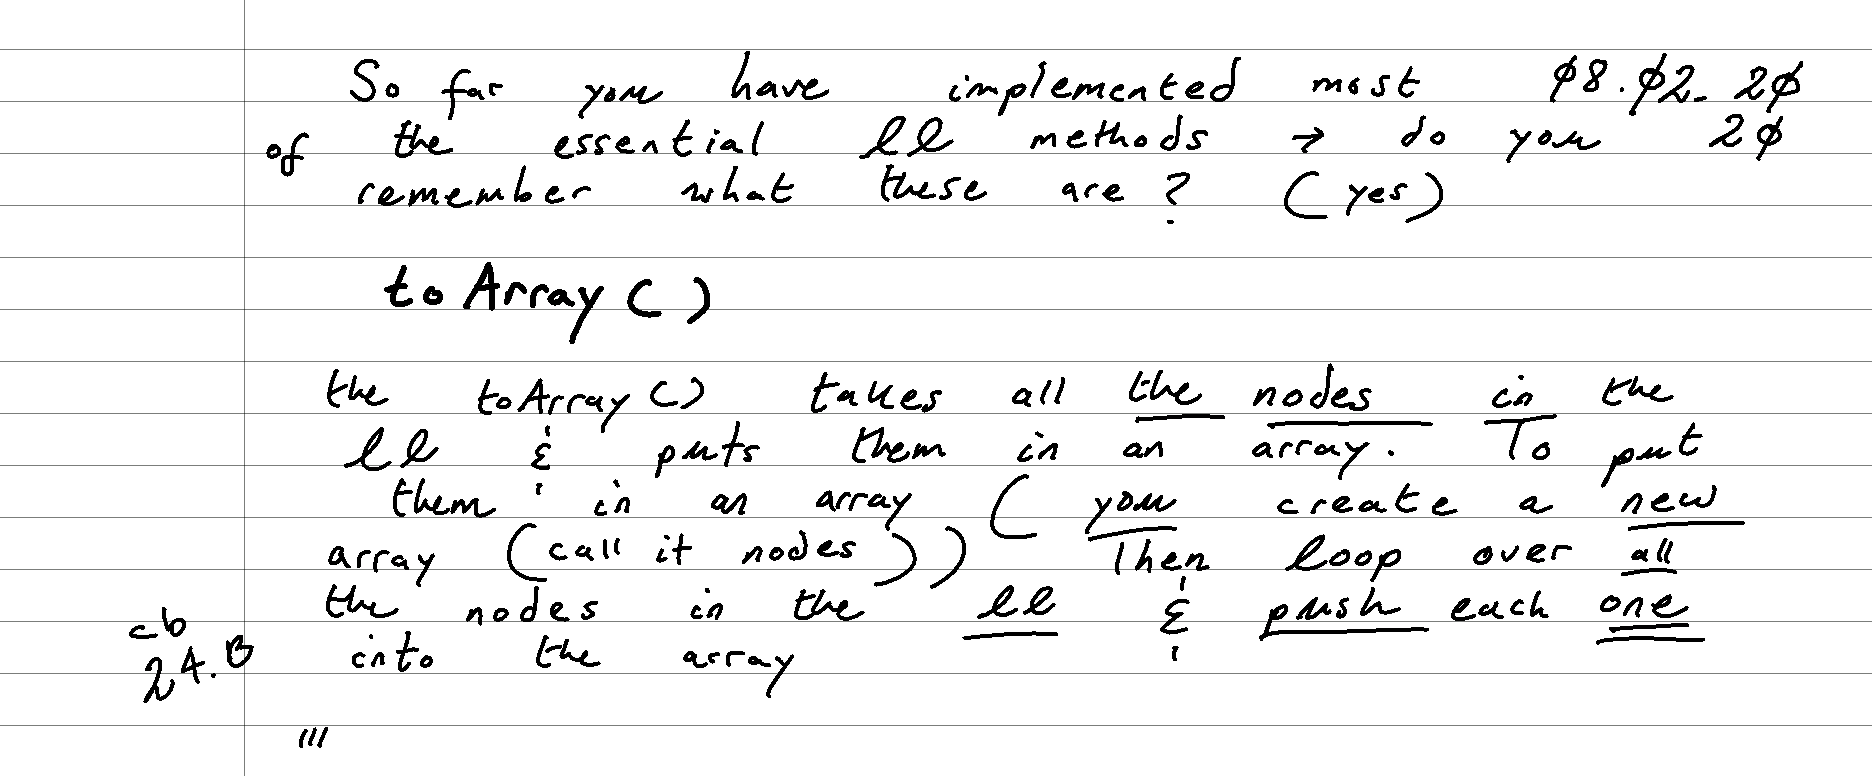 So far you have implemented most ø8.ø2.2ø
of the essential ll methods → do you 2ø
remember what these are? (yes)
toArray()
the toArray() takes all the nodes in the
ll & puts them in an array. To put
them in an array ( you create a new
array (call it nodes)) Then loop over all
the nodes in the ll & push each one
into the array
cb
24.B
///